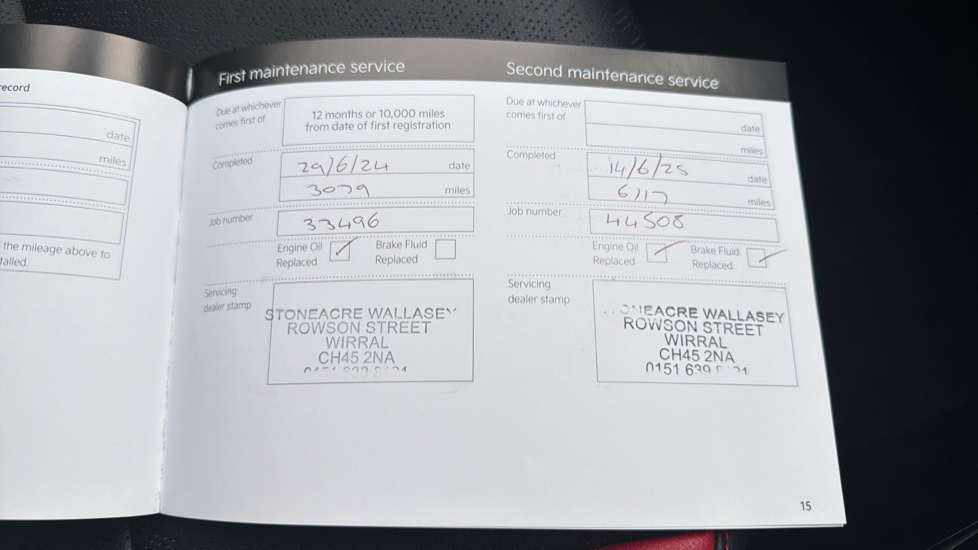 record
date
miles
the mileage above to
talled.
First maintenance service
Due at whichever
comes first of
12 months or 10,000 miles
from date of first registration
Completed
29/6/24 date
3079 miles
Job number
33496
Engine Oil
Replaced
Brake Fluid
Replaced
Servicing
dealer stamp
STONEACRE WALLASEY
ROWSON STREET
WIRRAL
CH45 2NA
Second maintenance service
Due at whichever
comes first of
date
miles
Completed
14/6/25 date
6117 miles
Job number
44508
Engine Oil
Replaced
Brake Fluid
Replaced
Servicing
dealer stamp
NEACRE WALLASEY
ROWSON STREET
WIRRAL
CH45 2NA
0151 639
15